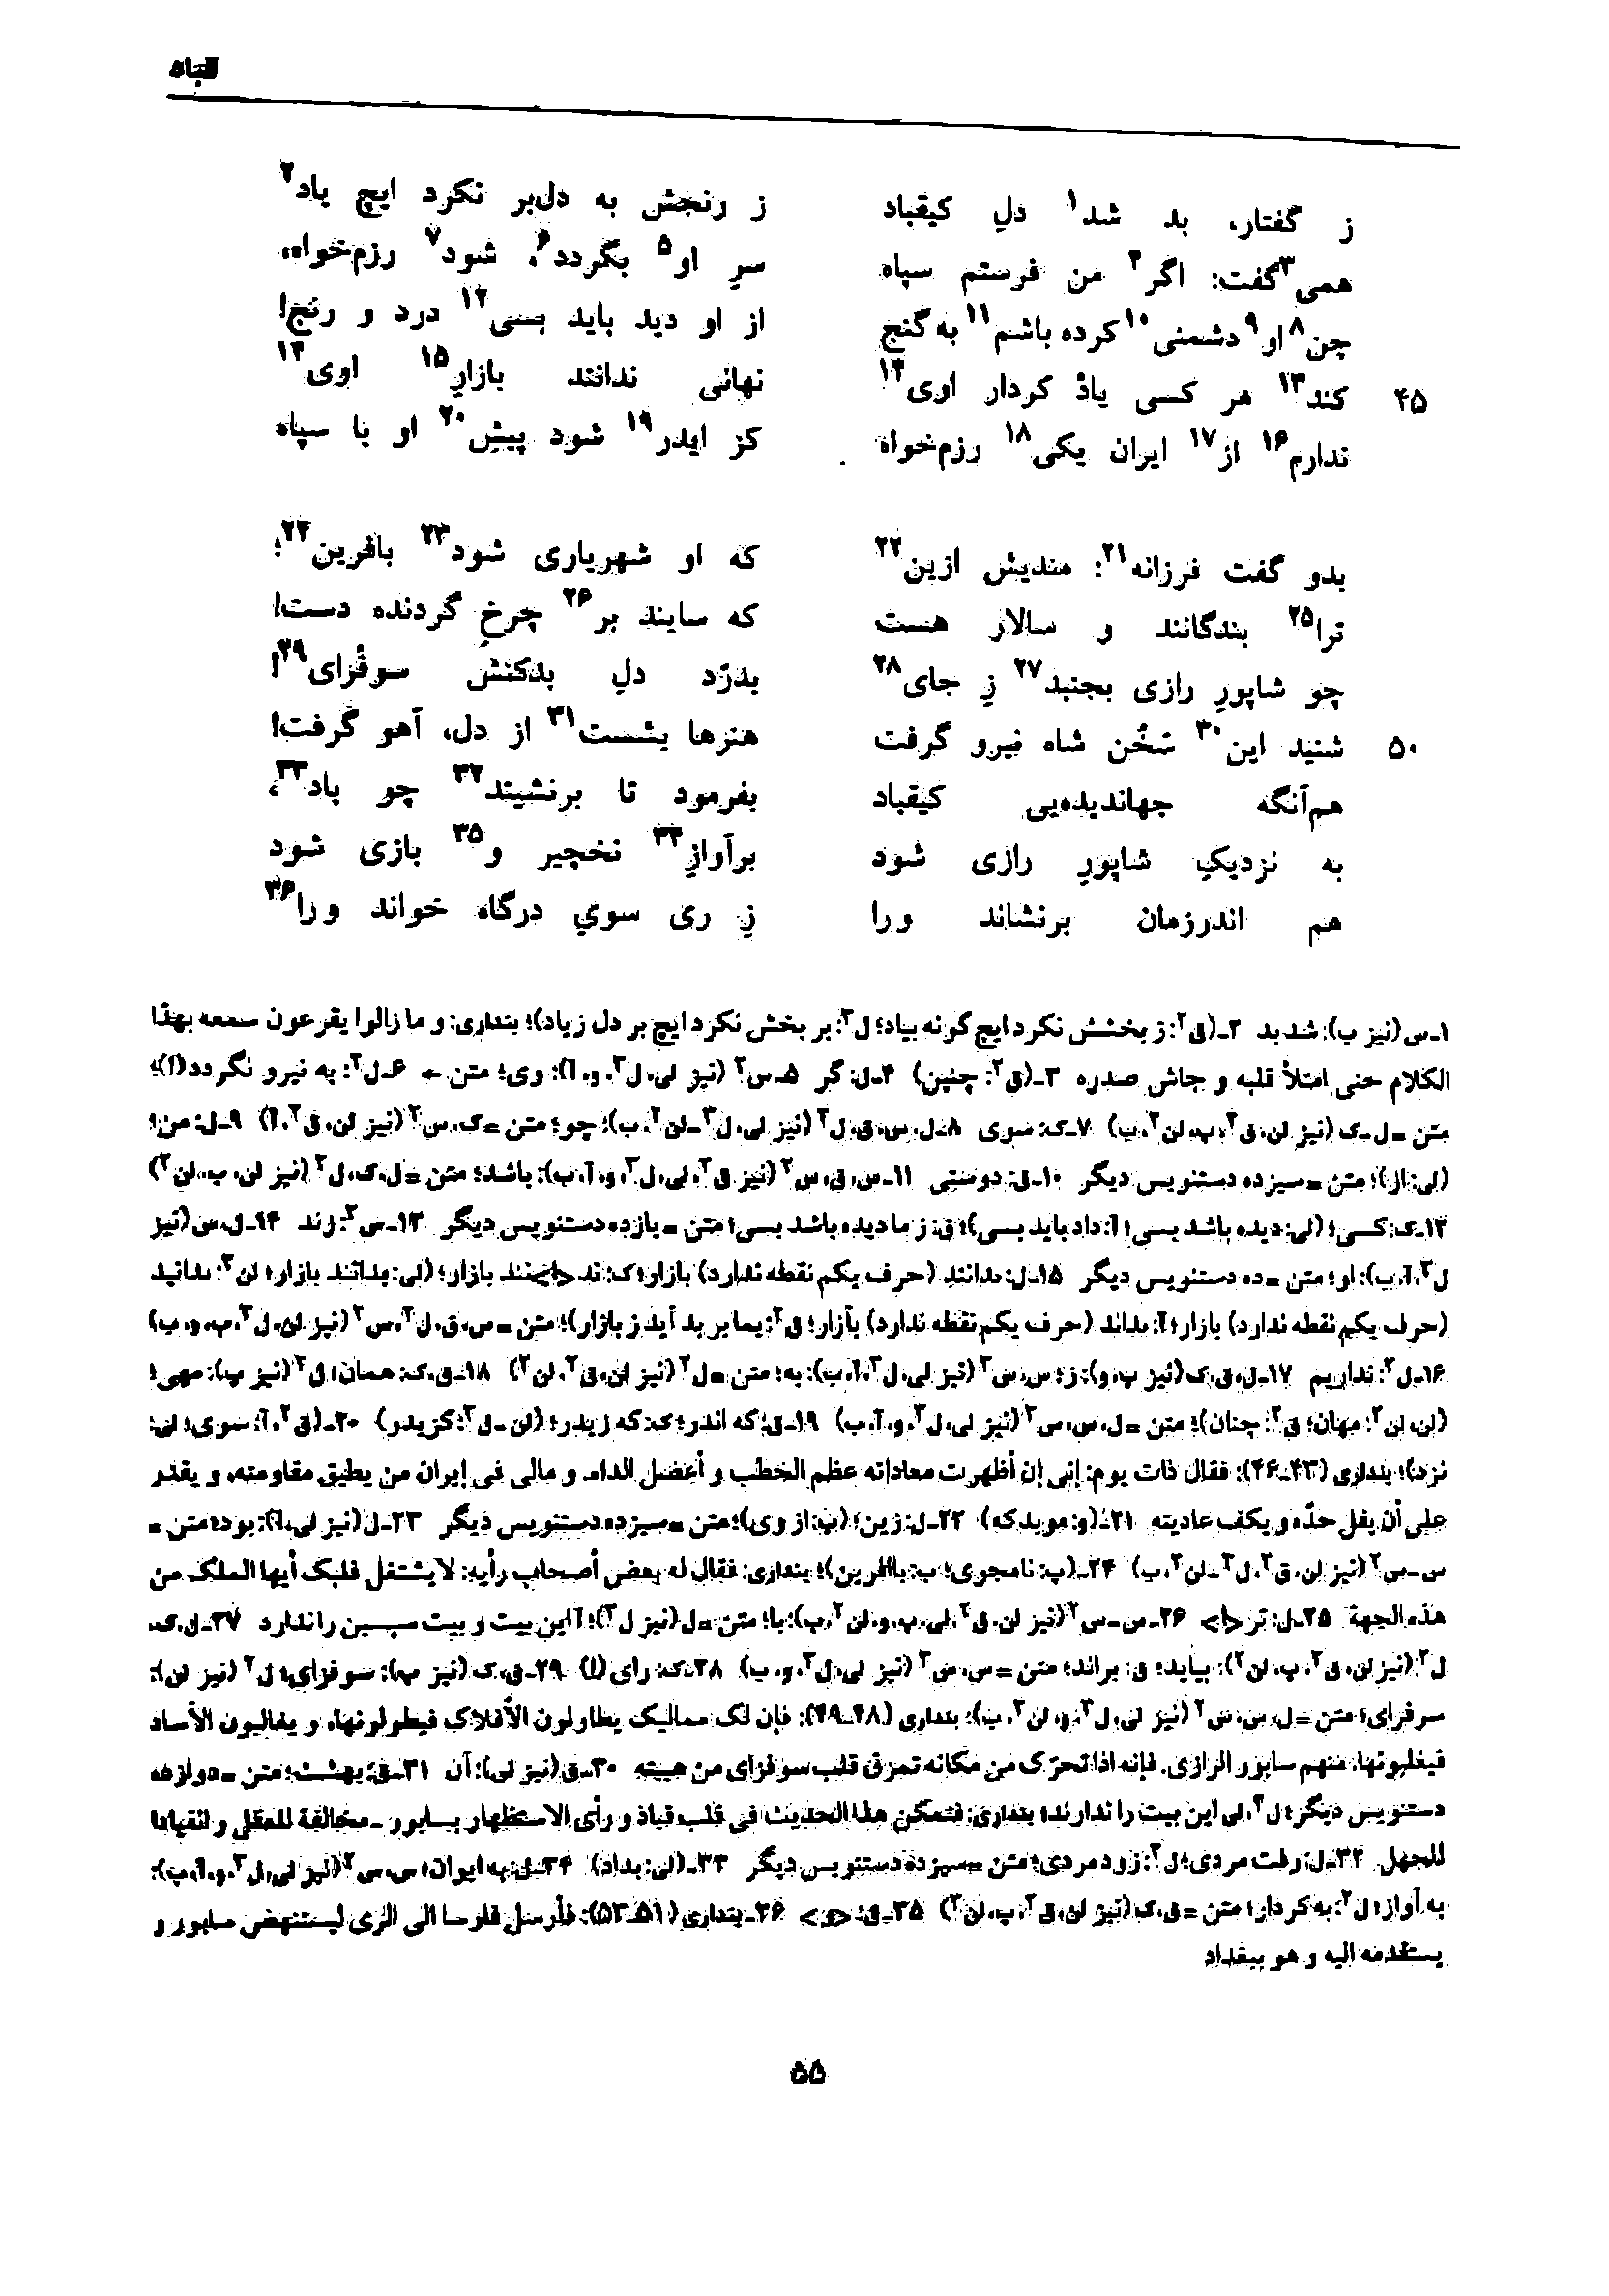 قباد
ز گفتار، بد شد۱ دلِ کیقباد ز رنجش به دل‌بر نکرد ایچ یاد۲
همی۳گفت: اگر۴ من فرستم سپاه سرِ او۵ بگردد۶، شود۷ رزم‌خواه،
چن۸ او۹ دشمنی۱۰ کرده باشم۱۱ به گنج از او دید باید بسی۱۲ درد و رنج!
۴۵ کند۱۳ هر کسی یاد کردار اوی۱۴ نهانی ندانند بازارِ۱۵ اوی۱۴
ندارم۱۶ از۱۷ ایران یکی۱۸ رزم‌خواه کز ایدر۱۹ شود پیش۲۰ او با سپاه
بدو گفت فرزانه۲۱: مندیش ازین۲۲ که او شهریاری شود۲۳ بافرین۲۴؛
ترا۲۵ بندگانند و سالار هست که سایند بر۲۶ چرخِ گردنده دست!
چو شاپورِ رازی بجنبد۲۷ زِ جای۲۸ بدرّد دلِ بدکنش سوفزای۲۹!
۵۰ شنید این۳۰ سَخُن شاه نیرو گرفت هنرها بشست۳۱ از دل، آهو گرفت!
هم‌آنگه جهاندیده‌یی کیقباد بفرمود تا برنشیند۳۲ چو باد۳۳،
به نزدیکِ شاپورِ رازی شود برآوازِ۳۴ نخچیر و۳۵ بازی شود
هم اندرزمان برنشاند ورا زِ ری سویِ درگاه خواند ورا۳۶
۱ـ س (نیز ب): شد بد ۲ـ (ق۲: ز بخشش نکرد ایچ گونه بیاد؛ ل۳: بر بخش نکرد ایچ بر دل ز یاد)؛ بنداری: و ما زالوا یقرعون سمعه بهذا
الکلام حتی امتلأ قلبه و جاش صدره ۳ـ (ق۲: چنین) ۴ـ ل: گر ۵ـ س۲ (نیز لی، ل۳، و، آ): وی؛ متن ← ۶ـ ل۲: به نیرو نگردد (!)؛
متن = ل ـ ک (نیز لن، ق۲، پ، لن۲، ب) ۷ـ ک: سوی ۸ـ ل، س، ق، ل۲ (نیز لی، ل۳ ـ لن۲، ب): چو؛ متن = ک، س۲ (نیز لن، ق۲، آ) ۹ـ ل: من؛
(لی: از)؛ متن = سیزده دستنویس دیگر ۱۰ـ ق: دوستی ۱۱ـ س، ق، س۲ (نیز ق۲، لی، ل۳، و، آ، ب): باشد؛ متن = ل، ک، ل۲ (نیز لن، پ، لن۲)
۱۲ـ ک: کسی؛ (لی: دیده باشد بسی؛ آ: داد باید بسی)؛ ق: ز ما دیده باشد بسی؛ متن = یازده دستنویس دیگر ۱۳ـ س۲: زند ۱۴ـ ل، س (نیز
(حرف یکم نقطه ندارد) بازار؛ آ: بداند (حرف یکم نقطه ندارد) بازار؛ ق۲: بما بر بد آید ز بازار)؛ متن = س، ق، ل۲، س۲ (نیز لن، ل۳، پ، و، ب)
۱۶ـ ل۲: نداریم ۱۷ـ ل، ق، ک (نیز پ، و): ز؛ س، س۲ (نیز لی، ل۳، آ، ب): به؛ متن = ل۲ (نیز لن، ق۲، لن۲) ۱۸ـ ق، ک: همان؛ ل۲ (نیز پ): مهی؛
(لن، لن۲: مهان؛ ق۲: چنان)؛ متن = ل، س، س۲ (نیز لی، ل۳، و، آ، ب) ۱۹ـ ق: که اندر؛ ک: که زیدر؛ (لن ـ ل۳: کزیدر) ۲۰ـ (ق۲، آ: سوی؛ لی:
نزد)؛ بنداری (۴۳ـ۴۶): فقال ذات یوم: إنی إن أظهرت معاداته عظم الخطب و أعضل الداء. و مالی فی إیران من یطیق مقاومته، و یقدر
علی أن یفل حدّه و یکف عادیته ۲۱ـ (و: موبد که) ۲۲ـ ل: زین؛ (پ: از وی)؛ متن = سیزده دستنویس دیگر ۲۳ـ ل (نیز لی، آ): بود؛ متن =
س ـ س۲ (نیز لن، ق۲، ل۳ ـ لن۲، ب) ۲۴ـ (پ: نامجوی؛ ب: باآفرین)؛ بنداری: فقال له بعض أصحاب رأیه: لا یشتغل قلبک أیها الملک من
هذه الجهة ۲۵ـ ل: تر<ا> ۲۶ـ س ـ س۲ (نیز لن، ق۲، لی، پ، و، لن۲، ب): با؛ متن = ل (نیز ل۳)؛ آ این بیت و بیت سپسین را ندارد ۲۷ـ ل، ک،
ل۲ (نیز لن، ق۲، پ، لن۲): بیاید؛ ق: براند؛ متن = س، س۲ (نیز لی، ل۳، و، ب) ۲۸ـ ک: رای (!) ۲۹ـ ق، ک (نیز پ): سوفرای؛ ل۲ (نیز لن):
سرفرای؛ متن = ل، س، س۲ (نیز لی، ل۳، و، لن۲، ب)؛ بنداری (۴۸ـ۴۹): فإن لک ممالیک یطاولون الأفلاک فیطولونها، و یغالبون الآساد
فیغلبونها. منهم سابور الرازی. فإنه اذا تحرّک من مکانه تمزق قلب سوفزای من هیبته ۳۰ـ ق (نیز لی): آن ۳۱ـ ق: بهشت؛ متن = دوازده
دستنویس دیگر؛ ل۳، لی این بیت را ندارند؛ بنداری: فتمکن هذا الحدیث فی قلب قباذ و رأی الاستظهار بسابور ـ مخالفة للعقل و انقیادا
للجهل ۳۲ـ ل: رفت مردی؛ ل۲: زود مردی؛ متن = سیزده دستنویس دیگر ۳۳ـ (لی: بداد) ۳۴ـ ل: به ایوان؛ س، س۲ (نیز لی، ل۳، و، آ، ب):
به آواز؛ ل۲: به کردار؛ متن = ق، ک (نیز لن، ق۲، پ، لن۲) ۳۵ـ ق: <و> ۳۶ـ بنداری (۵۱ـ۵۳): فأرسل فارسا الی الری لیستنهض سابور و
یستقدمه الیه و هو ببغداد
۵۵